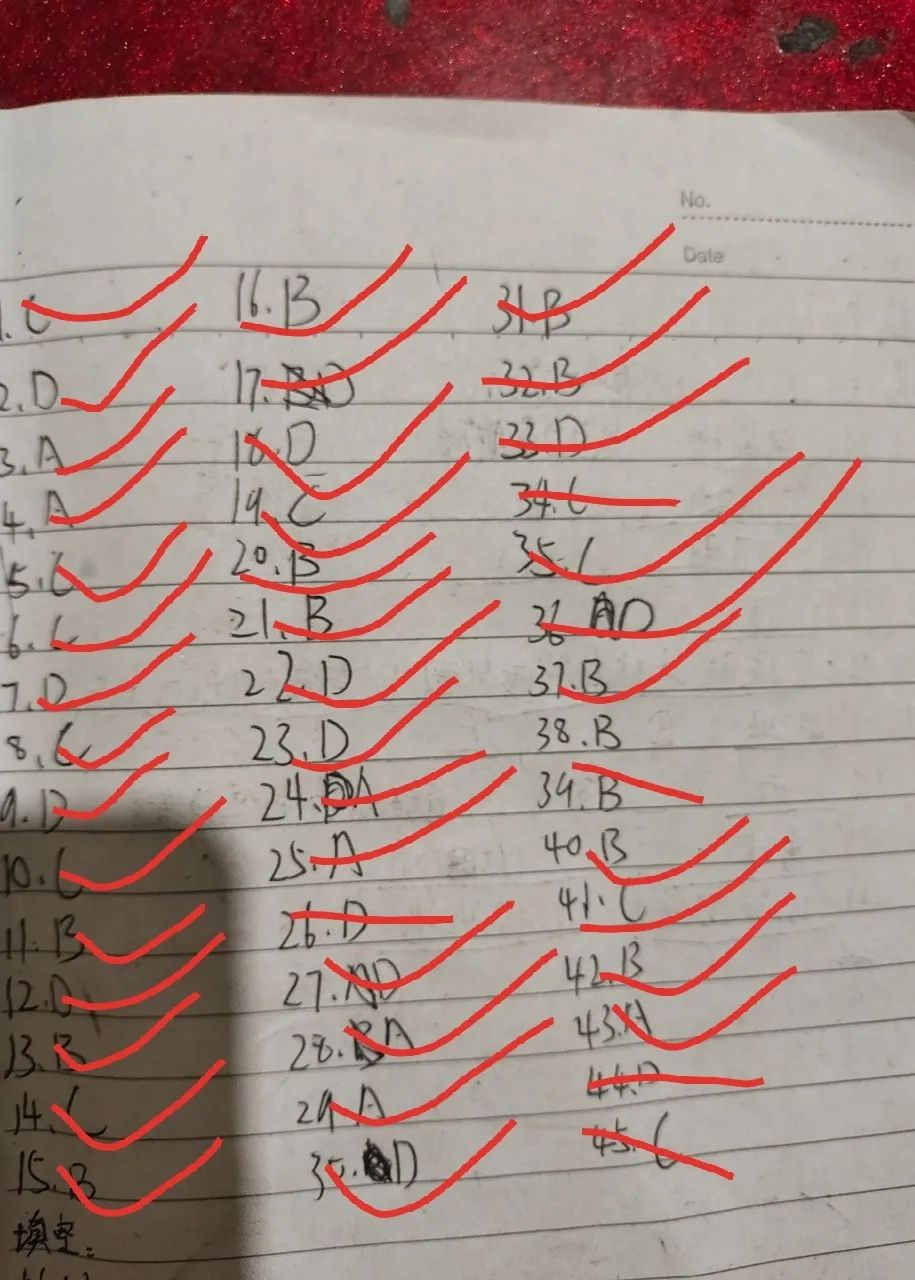 No.
Date
1. C
2. D
3. A
4. A
5. C
6. C
7. D
8. C
9. D
10. C
11. B
12. D
13. B
14. C
15. B
填空:
16. B
17. D
18. D
19. C
20. B
21. B
22. D
23. D
24. A
25. A
26. D
27. D
28. A
29. A
30. D
31. B
32. B
33. D
34. C
35. C
36 D
37. B
38. B
39. B
40. B
41. C
42. B
43. A
44. D
45. C